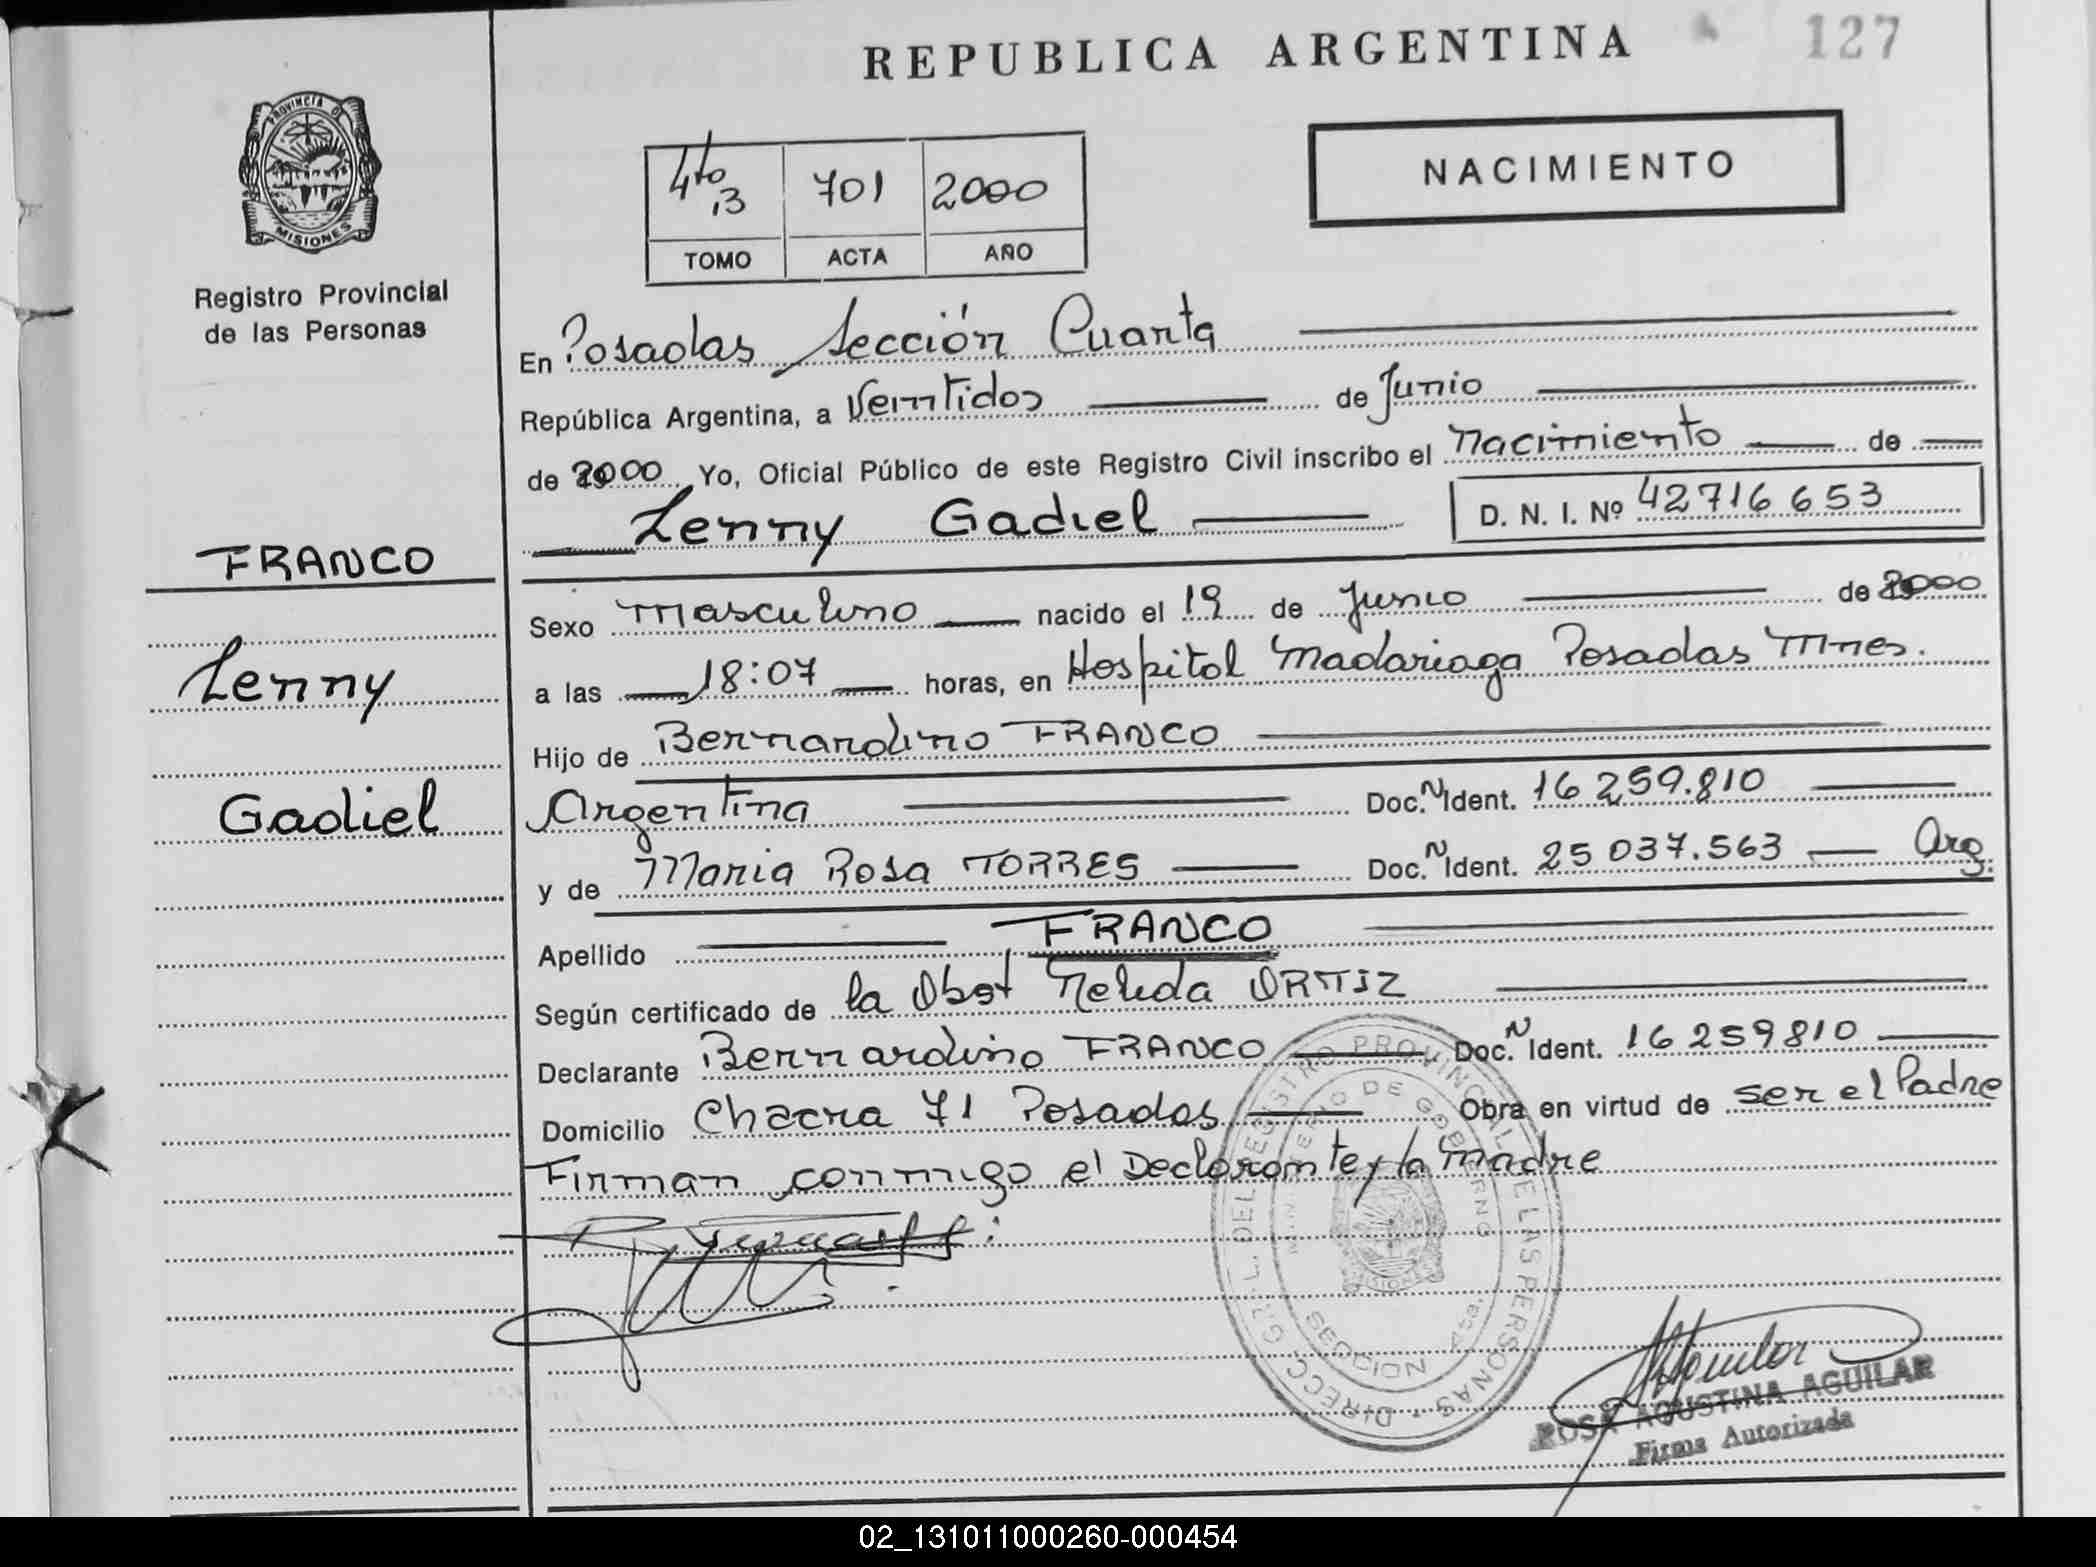 REPUBLICA ARGENTINA
127
PROVINCIA DE
MISIONES
Registro Provincial
de las Personas
4to 13 701 2000
TOMO ACTA AÑO
NACIMIENTO
En Posadas Sección Cuarta
República Argentina, a Veintidos de Junio
de 2000 Yo, Oficial Público de este Registro Civil inscribo el Nacimiento de
Lenny Gadiel
D. N. I. Nº 42716 653
FRANCO
Lenny
Gadiel
Sexo masculino nacido el 19 de Junio de 2000
a las 18:07 horas, en Hospital Madariaga Posadas Mnes.
Hijo de Bernardino FRANCO
Argentina Doc. N Ident. 16 259.810
y de Maria Rosa TORRES Doc. N Ident. 25 037.563 Arg.
Apellido FRANCO
Según certificado de la Obst Nelida ORTIZ
Declarante Bernardino FRANCO Doc. N Ident. 16 259810
Domicilio Chacra 71 Posadas Obra en virtud de ser el Padre
Firman conmigo el Declarante y la Madre
DIRECC. GRAL. DEL REGISTRO PROVINCIAL DE LAS PERSONAS
MINISTERIO DE GOBIERNO
SECCION 4ta.
MISIONES
ROSA AGUSTINA AGUILAR
Firma Autorizada
02_131011000260-000454